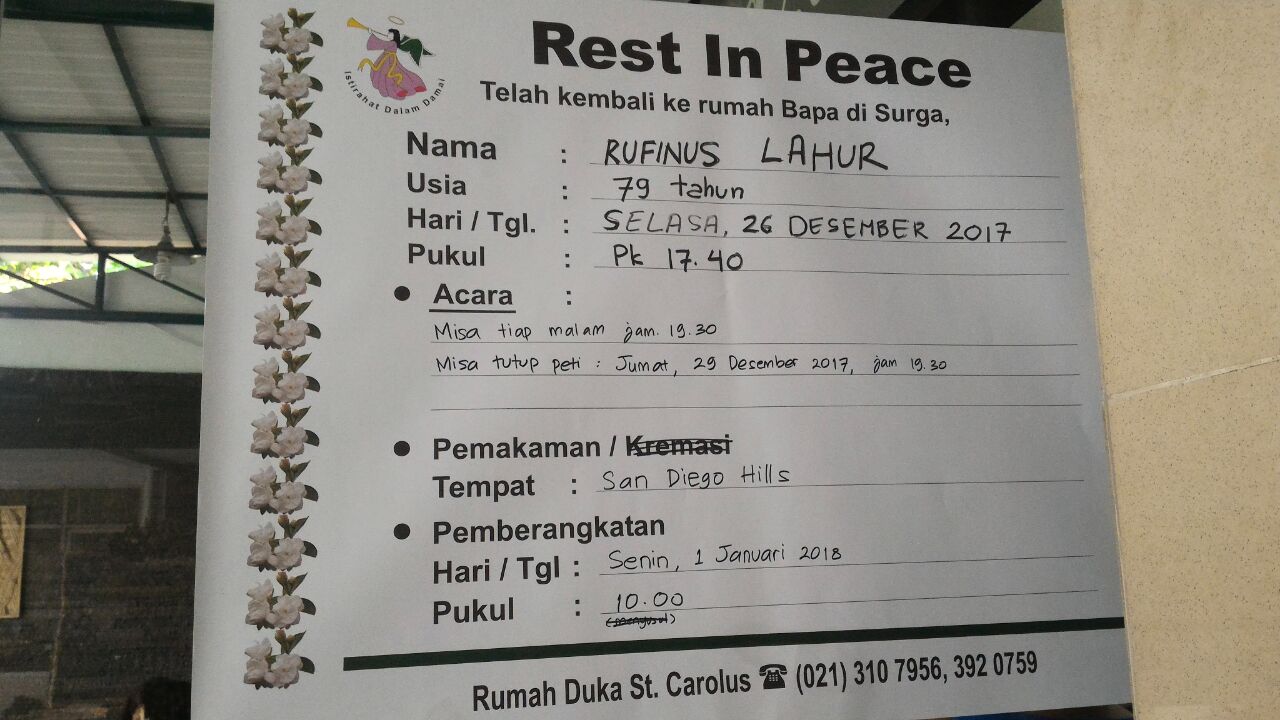 Istirahat Dalam Damai
Rest In Peace
Telah kembali ke rumah Bapa di Surga,
Nama : RUFINUS LAHUR
Usia : 79 tahun
Hari / Tgl. : SELASA, 26 DESEMBER 2017
Pukul : Pk 17.40
● Acara :
Misa tiap malam jam. 19.30
Misa tutup peti : Jumat, 29 Desember 2017, jam 19.30
● Pemakaman / Kremasi
Tempat : San Diego Hills
● Pemberangkatan
Hari / Tgl : Senin, 1 Januari 2018
Pukul : 10.00
(menyusul)
Rumah Duka St. Carolus ☎ (021) 310 7956, 392 0759